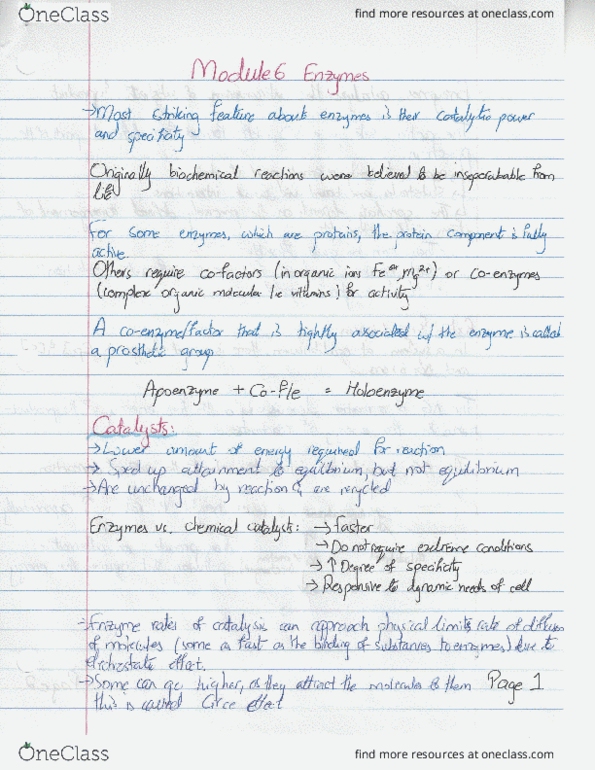 OneClass
find more resources at oneclass.com
Module 6 Enzymes
→Most striking feature about enzymes is their catalytic power
and specificity
Originally biochemical reactions were believed to be inseparable from
life
For some enzymes, which are proteins, the protein component is fully
active.
Others require co-factors (inorganic ions Fe²⁺, Mg²⁺) or co-enzymes
(complex organic molecular /ie vitamins) for activity
A co-enzyme/factor that is tightly associated w/ the enzyme is called
a prosthetic group
Apoenzyme + Co-f/e = Holoenzyme
Catalysts:
→Lower amount of energy required for reaction
→ Speed up attainment to equilibrium, but not equilibrium
→Are unchanged by reaction & are recycled
Enzymes vs. chemical catalysts: → faster
→ Do not require extreme conditions
→ ↑ Degree of specificity
→ Responsive to dynamic needs of cell
→Enzyme rates of catalysis can approach physical limits rate of
of molecules (some as fast as the binding of substances to enzymes) due to
effect.
→Some can go higher, as they attract the molecules to them
this is called Circe effect
Page 1
OneClass
find more resources at oneclass.com